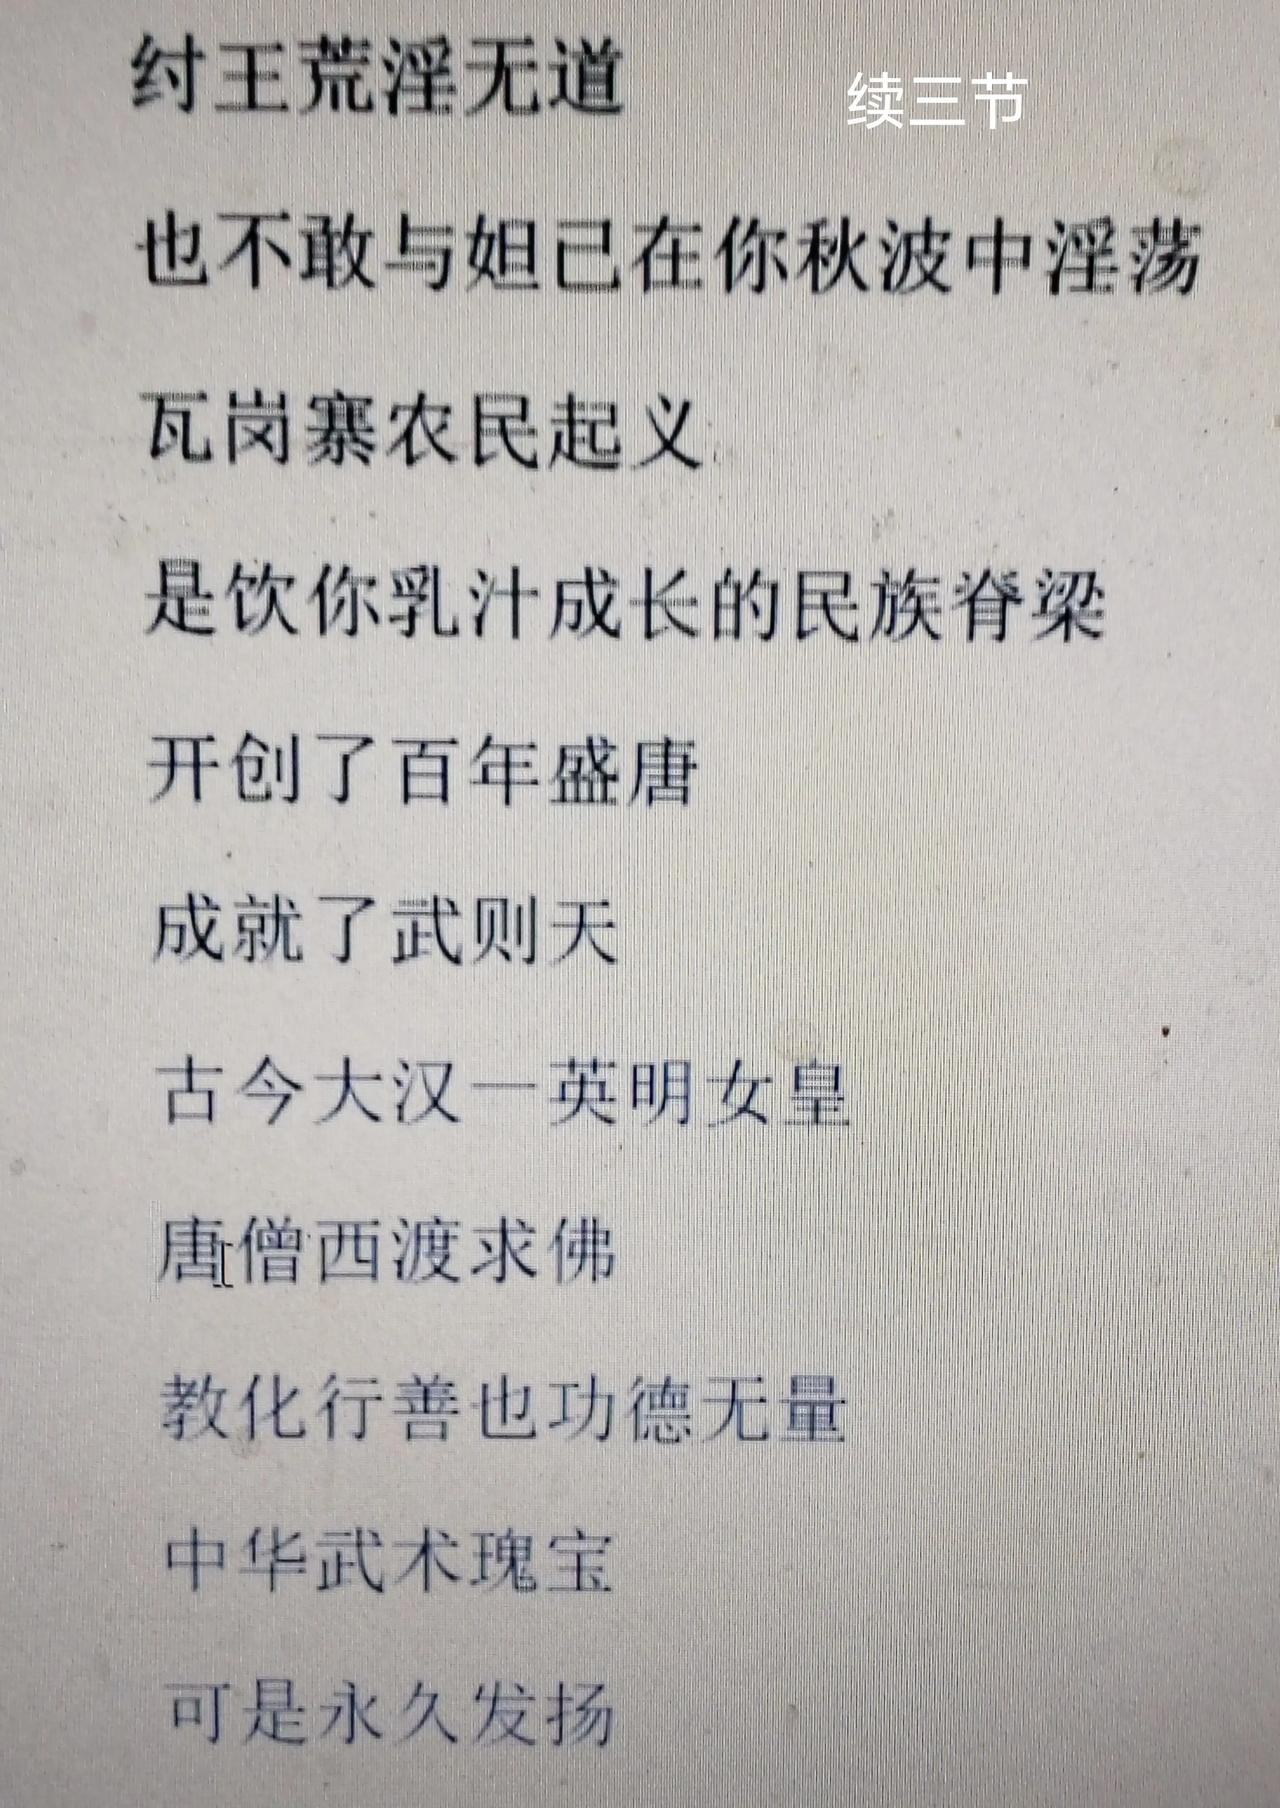 纣王荒淫无道
续三节
也不敢与妲己在你秋波中淫荡
瓦岗寨农民起义
是饮你乳汁成长的民族脊梁
开创了百年盛唐
成就了武则天
古今大汉一英明女皇
唐僧西渡求佛
教化行善也功德无量
中华武术瑰宝
可是永久发扬